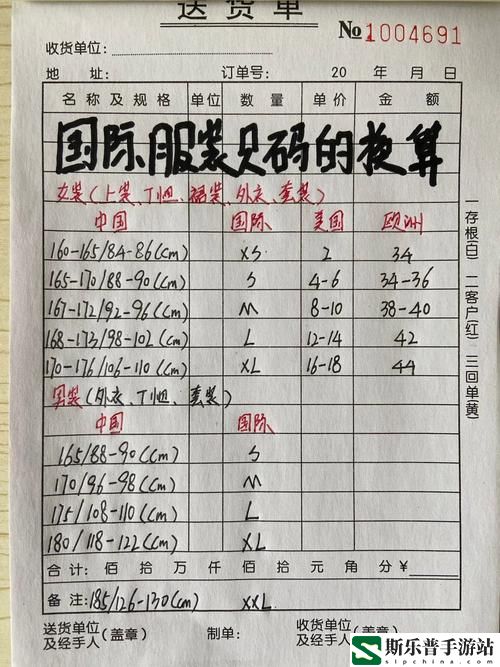 送货单
№1004691
收货单位:
地 址: 订单号: 20 年 月 日
名称及规格 单位 数量 单价 金额
国际服装尺码的换算
女装(上装、T恤、裙装、外衣、套装)
中国 国际 美国 欧洲
160-165/84-86(cm) XS 2 34
165-170/88-90(cm) S 4-6 34-36
167-172/92-96(cm) M 8-10 38-40
168-173/98-102(cm) L 12-14 42
170-176/106-110(cm) XL 16-18 44
男装(外衣、T恤、套装)
中国 国际
165/88-90(cm) S
170/96-98(cm) M
175/108-110(cm) L
180/118-122(cm) XL
合计: 佰 拾 万 仟 佰 拾 元 角 分 ¥
备注: 185/126-130(cm) XXL
送货单位及经手人(盖章) 制单: 收货单位及经手人(盖章)
一存根(白) 二客户(红) 三回单(黄)
斯乐普手游站
slpchina.com